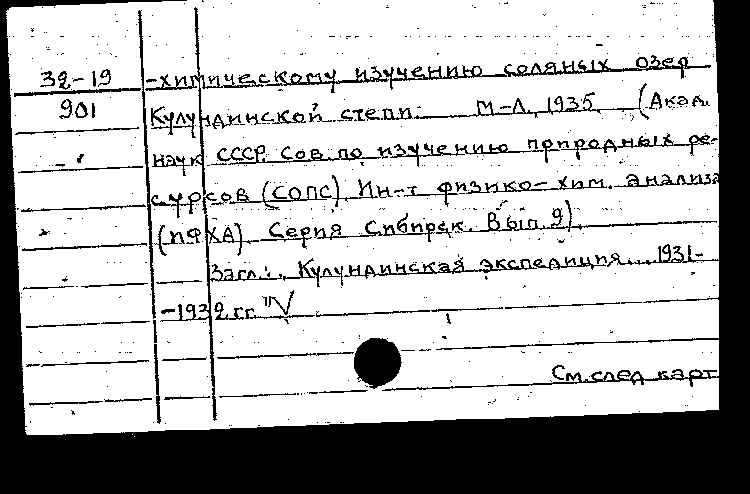 32-19 -химическому изучению соляных озер
901 Кулундинской степи. М-Л., 1935. (Акад.
наук СССР. Сов. по изучению природных ре-
сурсов (СОПС). Ин-т физико-хим. анализа
(ИФХА). Серия Сибирск. Вып. 9).
Загл.: „Кулундинская экспедиция... 1931-
-1932 гг."
См. след. карт